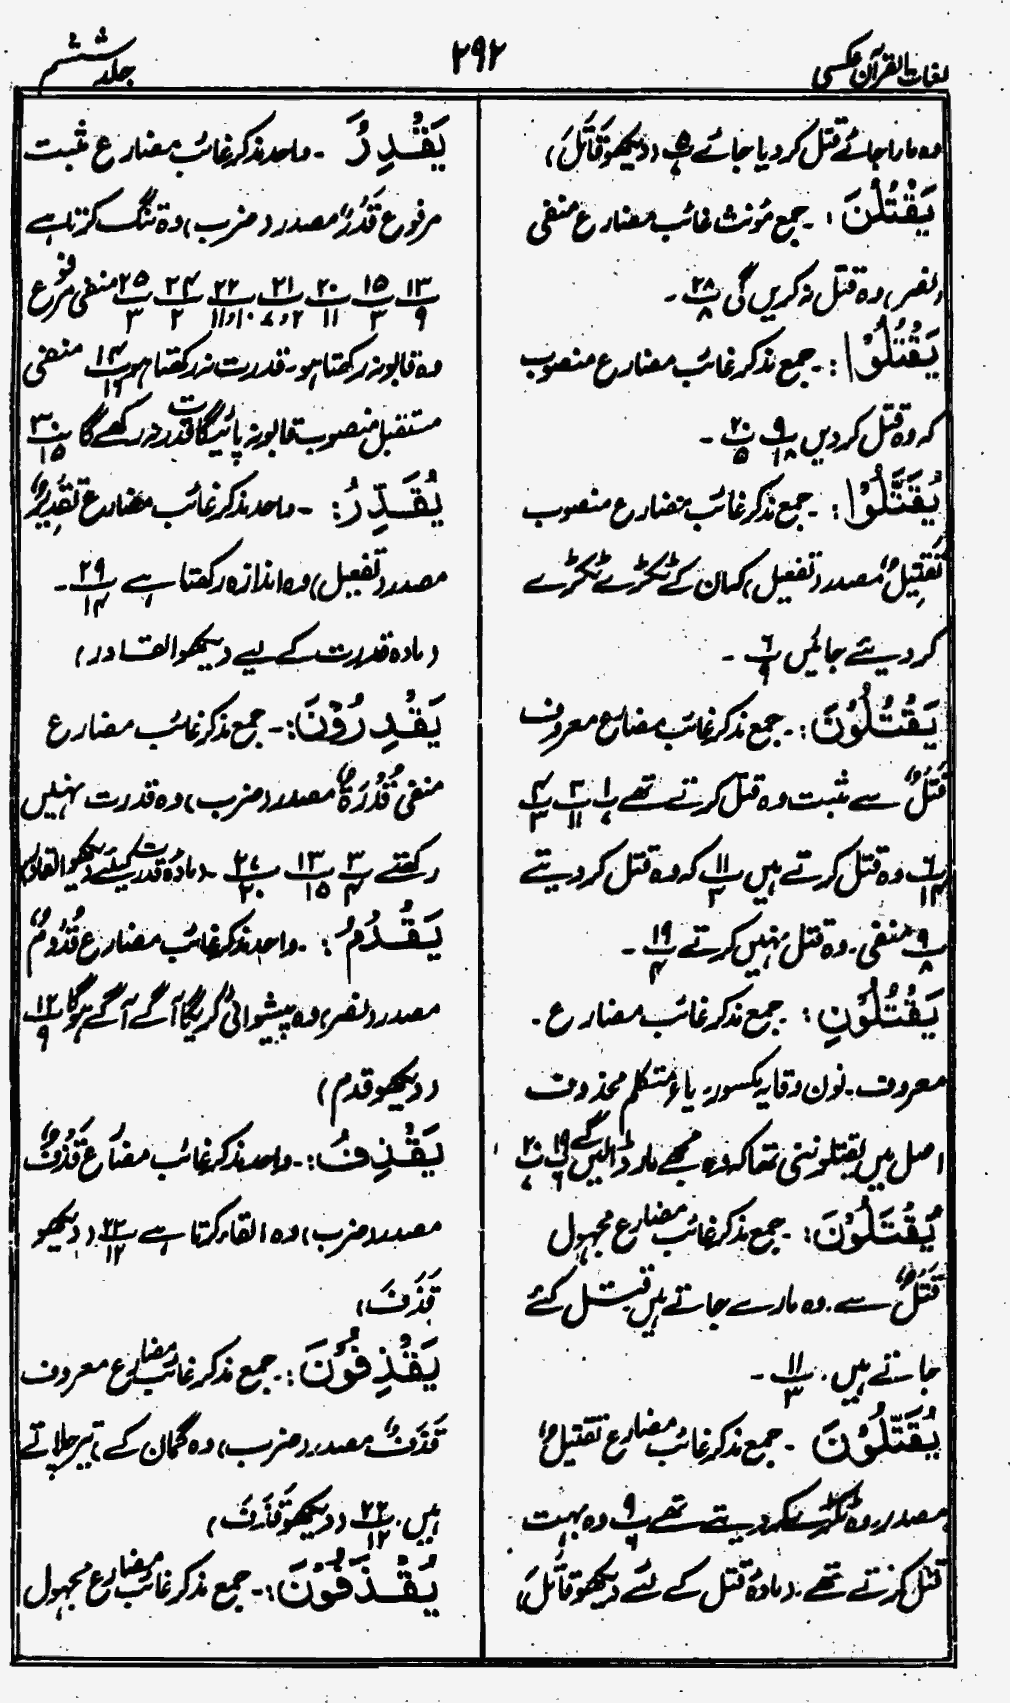 لغات القرآن عکسی
۲۹۲
جلد ششم
وہ مارا جائے قتل کر دیا جائے پ ۵/۷ (دیکھو قَاتَلَ)
يَقْتُلْنَ : ۔ جمع مؤنث غائب مضارع منفی
(نصر) وہ قتل نہ کریں گی پ ۲۸/۸ ۔
يَقْتُلُوْا : ۔ جمع مذکر غائب مضارع منصوب
کہ وہ قتل کر دیں پ ۹/۱۸ پ ۲۰/۵ ۔
يُقَتَّلُوْا : ۔ جمع مذکر غائب مضارع منصوب
تَقْتِيْلٌ مصدر (تفعیل) کہ ان کے ٹکڑے ٹکڑے
کر دیئے جائیں پ ۶/۹ ۔
يَقْتُلُوْنَ : ۔ جمع مذکر غائب مضارع معروف
قَتْلٌ سے مثبت وہ قتل کرتے تھے پ ۱/۷ پ ۳/۱۱ پ ۴/۳
پ ۶/۱۴ وہ قتل کرتے ہیں پ ۱۱/۳ کہ وہ قتل کر دیتے
پ ۹/۸ منفی ۔ وہ قتل نہیں کرتے پ ۱۹/۴ ۔
يَقْتُلُوْنِ : ۔ جمع مذکر غائب مضارع ۔
معروف ۔ نون وقایہ مکسورہ یاء متکلم محذوف
اصل میں یقتلوننی تھا کہ وہ مجھے مار ڈالیں گے پ ۱۹/۶ پ ۲۰/۷
يُقْتَلُوْنَ : ۔ جمع مذکر غائب مضارع مجہول
قَتْلٌ سے ۔ وہ مارے جاتے ہیں قتل کئے
جاتے ہیں ۔ پ ۱۱/۳ ۔
يُقَتِّلُوْنَ ۔ جمع مذکر غائب مضارع تقتیلٌ
مصدر ۔ وہ ٹکڑے ٹکڑے کر دیتے تھے پ ۹/۶ وہ بہت
قتل کرتے تھے ۔ (مادہ قتل کے لئے دیکھو قَاتَلَ)
يَقْدِرُ ۔ واحد مذکر غائب مضارع مثبت
مرفوع قَدْرٌ مصدر (ضرب) وہ تنگ کرتا ہے
پ ۱۳/۹ پ ۱۵/۳ پ ۲۰/۱۱ پ ۲۱/۷و۲ پ ۲۲/۱۰و۱۱ پ ۲۴/۲ پ ۲۵/۳ منفی مرفوع
وہ قابو نہ رکھتا ہو ۔ قدرت نہ رکھتا ہو پ ۱۴/۱۶ منفی
مستقبل منصوب قابو نہ پائیگا قدرت نہ رکھے گا پ ۳۰/۱۵
يُقَدِّرُ : ۔ واحد مذکر غائب مضارع تَقْدِيْرٌ
مصدر (تفعیل) وہ اندازہ رکھتا ہے پ ۲۹/۱۴ ۔
(مادہ قدرت کے لیے دیکھو القادر)
يَقْدِرُوْنَ : ۔ جمع مذکر غائب مضارع
منفی قُدْرَةٌ مصدر (ضرب) وہ قدرت نہیں
رکھتے پ ۳/۴ پ ۱۳/۱۵ پ ۲۷/۲۰ ۔ (مادہ قدرت کیلئے دیکھو القادر)
يَقْدُمُ : ۔ واحد مذکر غائب مضارع قُدُوْمٌ
مصدر (نصر) وہ پیشوائی کریگا آگے آگے ہوگا پ ۱۲/۹
(دیکھو قدم)
يَقْذِفُ : ۔ واحد مذکر غائب مضارع قَذْفٌ
مصدر (ضرب) وہ القاء کرتا ہے پ ۲۲/۱۲ (دیکھو
قَذَفَ)
يَقْذِفُوْنَ : ۔ جمع مذکر غائب مضارع معروف
قَذْفٌ مصدر (ضرب) وہ گمان کے تیر چلاتے
ہیں ۔ پ ۲۲/۱۲ (دیکھو قَذَفَ)
يُقْذَفُوْنَ : ۔ جمع مذکر غائب مضارع مجہول